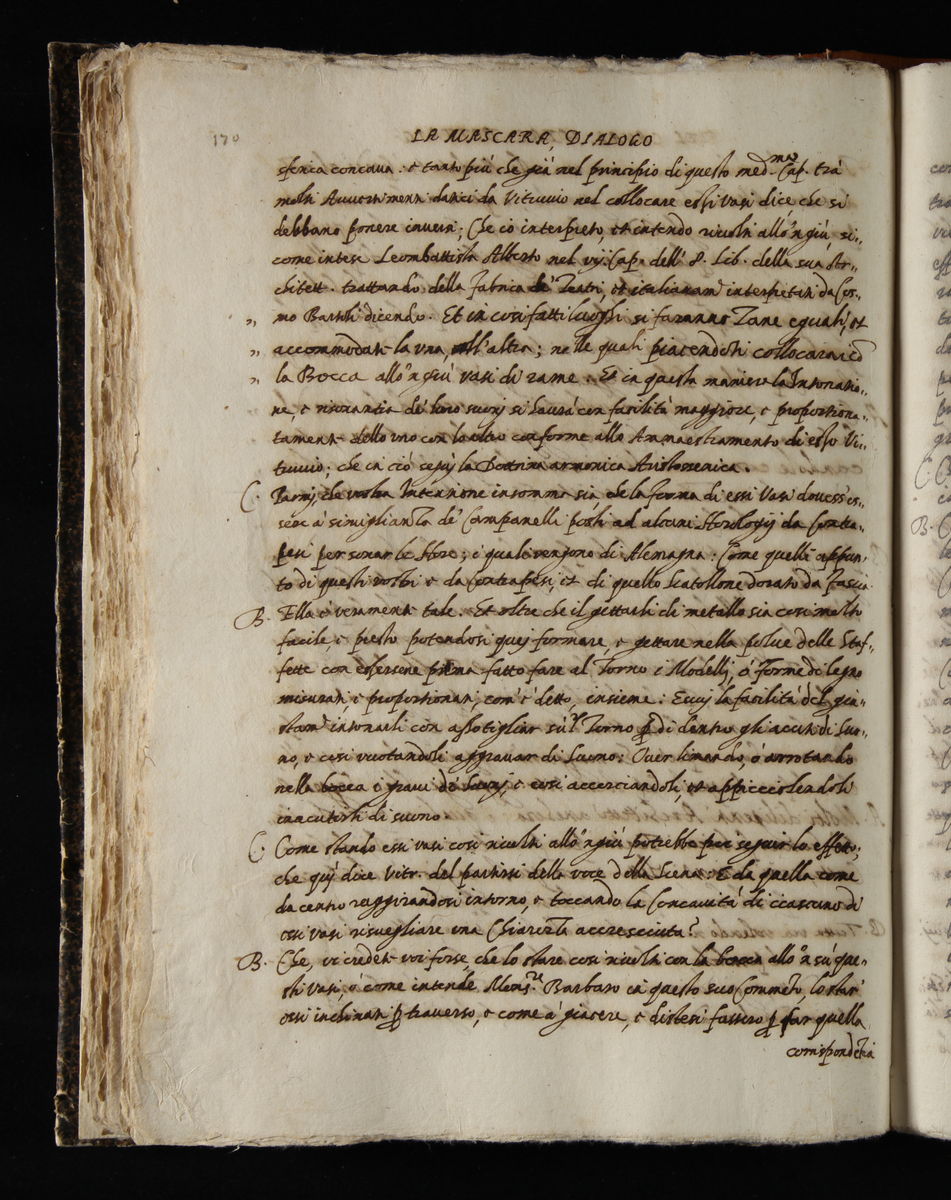 170
LA MASCARA, DIALOGO
sferica concaua: e tanto più che già nel principio di questo med.mo Cap. trà
molti Auuertimenti datici da Vitruuio nel collocare essi Vasi dice che si
debbano ponere inuersi; Che iò interpreto, et intendo riuolti allo 'ngiù, si-
come intese Leombattista Alberto nel vij Cap. dell' 8. Lib. della sua Ar-
chitett. trattando della fabrica de' Teatri, et italianam.te interpretati da Cos-
" mo Bartoli dicendo. Et in cosi fatti luoghi si faranno Zane eguali, et
" accommodati la una, all'altra; nelle quali piacendoti collocaraicō
" la Bocca allo 'ngiù vasi di rame. Et in questa maniera la Intonatio-
ne, e risonantia de' loro suoni si haurà con facilità maggiore, e proportiona-
tamente dello uno con lo altro conforme allo Ammaestramento di esso Vi-
truuio; che in ciò seguj la Dottrina armonica Aristossenica.
C. Parmi, che vostra Intentione insomma sia, che la forma di essi Vasi douess' es-
sere à simiglianza de' Campanelli posti ad alcuni Horologij da Contra-
pesi per sonar le Hore; i quali vengono di Alemagna: Come quelli appun-
to di questi vostri e da Contrapesi, et di quello Scatollone dorato da
B. Ella è veramente tale. Et oltre che il gettarli di metallo sia cosi molto
facile, e presto potendosi quej formare, e gettare nella polue delle Staf-
fette con essersene prima fatto fare al Torno i Modellj, ò Forme di legno
misurati, e proportionati, com' è detto, insieme: Euuj la facilità del giu-
stam.te intonarli con assotigliar sù 'l Torno ꝑ di dentro gli acuti di suo-
no, e cosi vuotandoli aggrauar di suono: Ouer limando, ò arrotando
nella bocca i graui de' suonj, e cosi accorciandoli, et appicciolendoli
inacutirli di suono.
C. Come stando essi vasi cosi riuolti allo 'ngiù potrebbe poi seguir lo effetto,
che quj dice Vitr. del partirsi della voce della Scena: E da quella come
da centro raggirandosi intorno, e toccando la Concauità di ciascuno di
essi vasi risuegliare una Chiarezza accresciuta?
B. Che, vi credete voi forse, che lo stare cosi riuolti con la bocca allo 'n sù que-
sti vasi, ò come intende Mons.re Barbaro in questo suo Commeto, lo star'
essi inclinati ꝑ trauerso, e come à giacere, e distesi fassero ꝑ far quella
corrispondetia